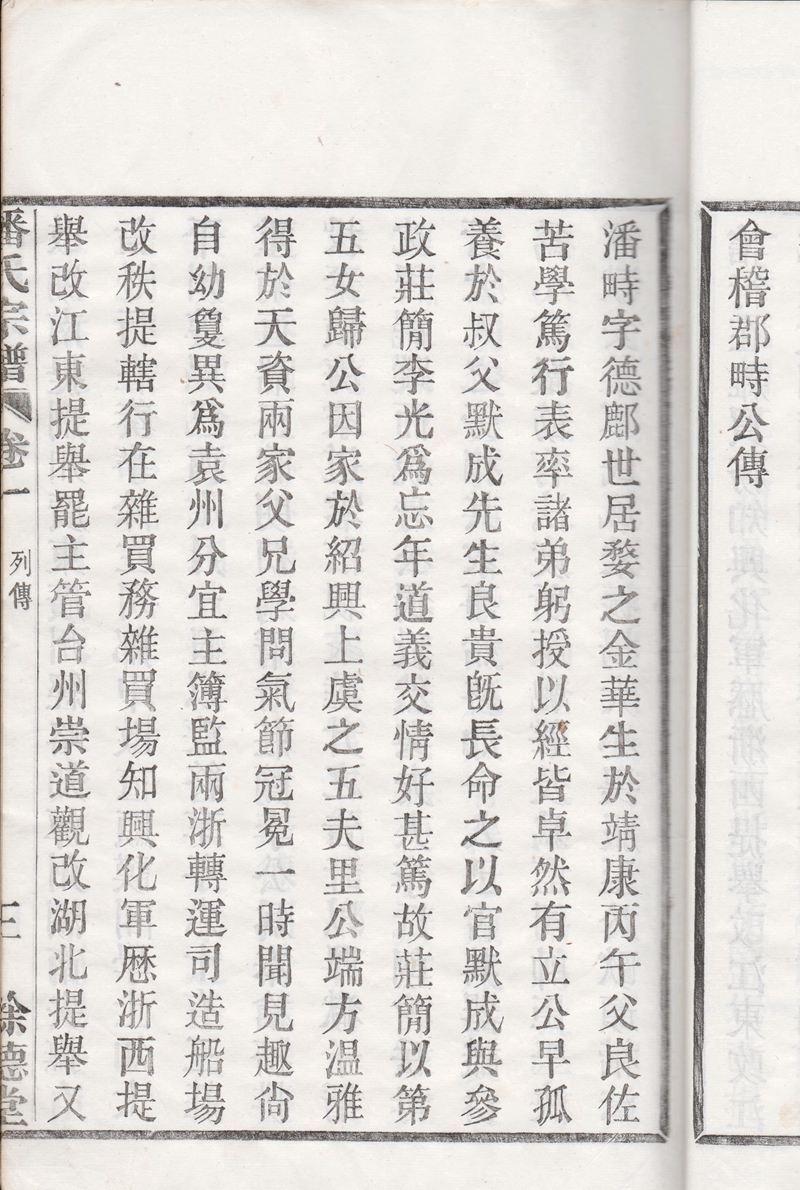 會稽郡時公傳
潘畤字德鄜世居婺之金華生於靖康丙午父良佐
苦學篤行表率諸弟躬授以經皆卓然有立公早孤
養於叔父默成先生良貴旣長命之以官默成與參
政莊簡李光爲忘年道義交情好甚篤故莊簡以第
五女歸公因家於紹興上虞之五夫里公端方温雅
得於天資兩家父兄學問氣節冠冕一時聞見趣尙
自幼敻異爲袁州分宜主簿監兩浙轉運司造船場
改秩提轄行在雜買務雜買場知興化軍厯浙西提
舉改江東提舉罷主管台州崇道觀改湖北提舉又
潘氏宗譜 卷一 列傳 三 餘德堂